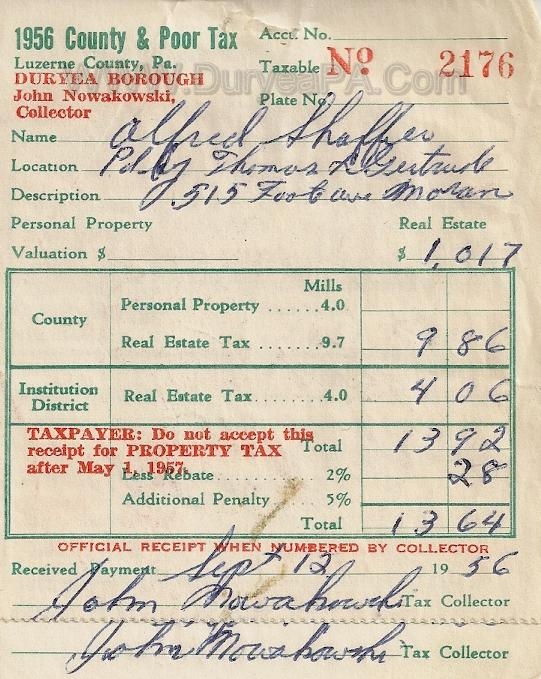 1956 County & Poor Tax Acct. No.
Luzerne County, Pa. Taxable No 2176
DURYEA BOROUGH
www.DuryeaPA.Com
John Nowakowski, Plate No.
Collector
Name Alfred Shaffer
Location Pd by Thomas & Gertrude
Description 515 Foote ave Moran
Personal Property Real Estate
Valuation $ $ 1,017
Mills
County Personal Property ...... 4.0
Real Estate Tax ...... 9.7 9 86
Institution District Real Estate Tax ..... 4.0 4 06
TAXPAYER: Do not accept this
receipt for PROPERTY TAX Total 13 92
after May 1, 1957.
Less Rebate 2% 28
Additional Penalty 5%
Total 13 64
OFFICIAL RECEIPT WHEN NUMBERED BY COLLECTOR
Received Payment Sept 12 1956
John Nowakowski Tax Collector
John Nowakowski Tax Collector